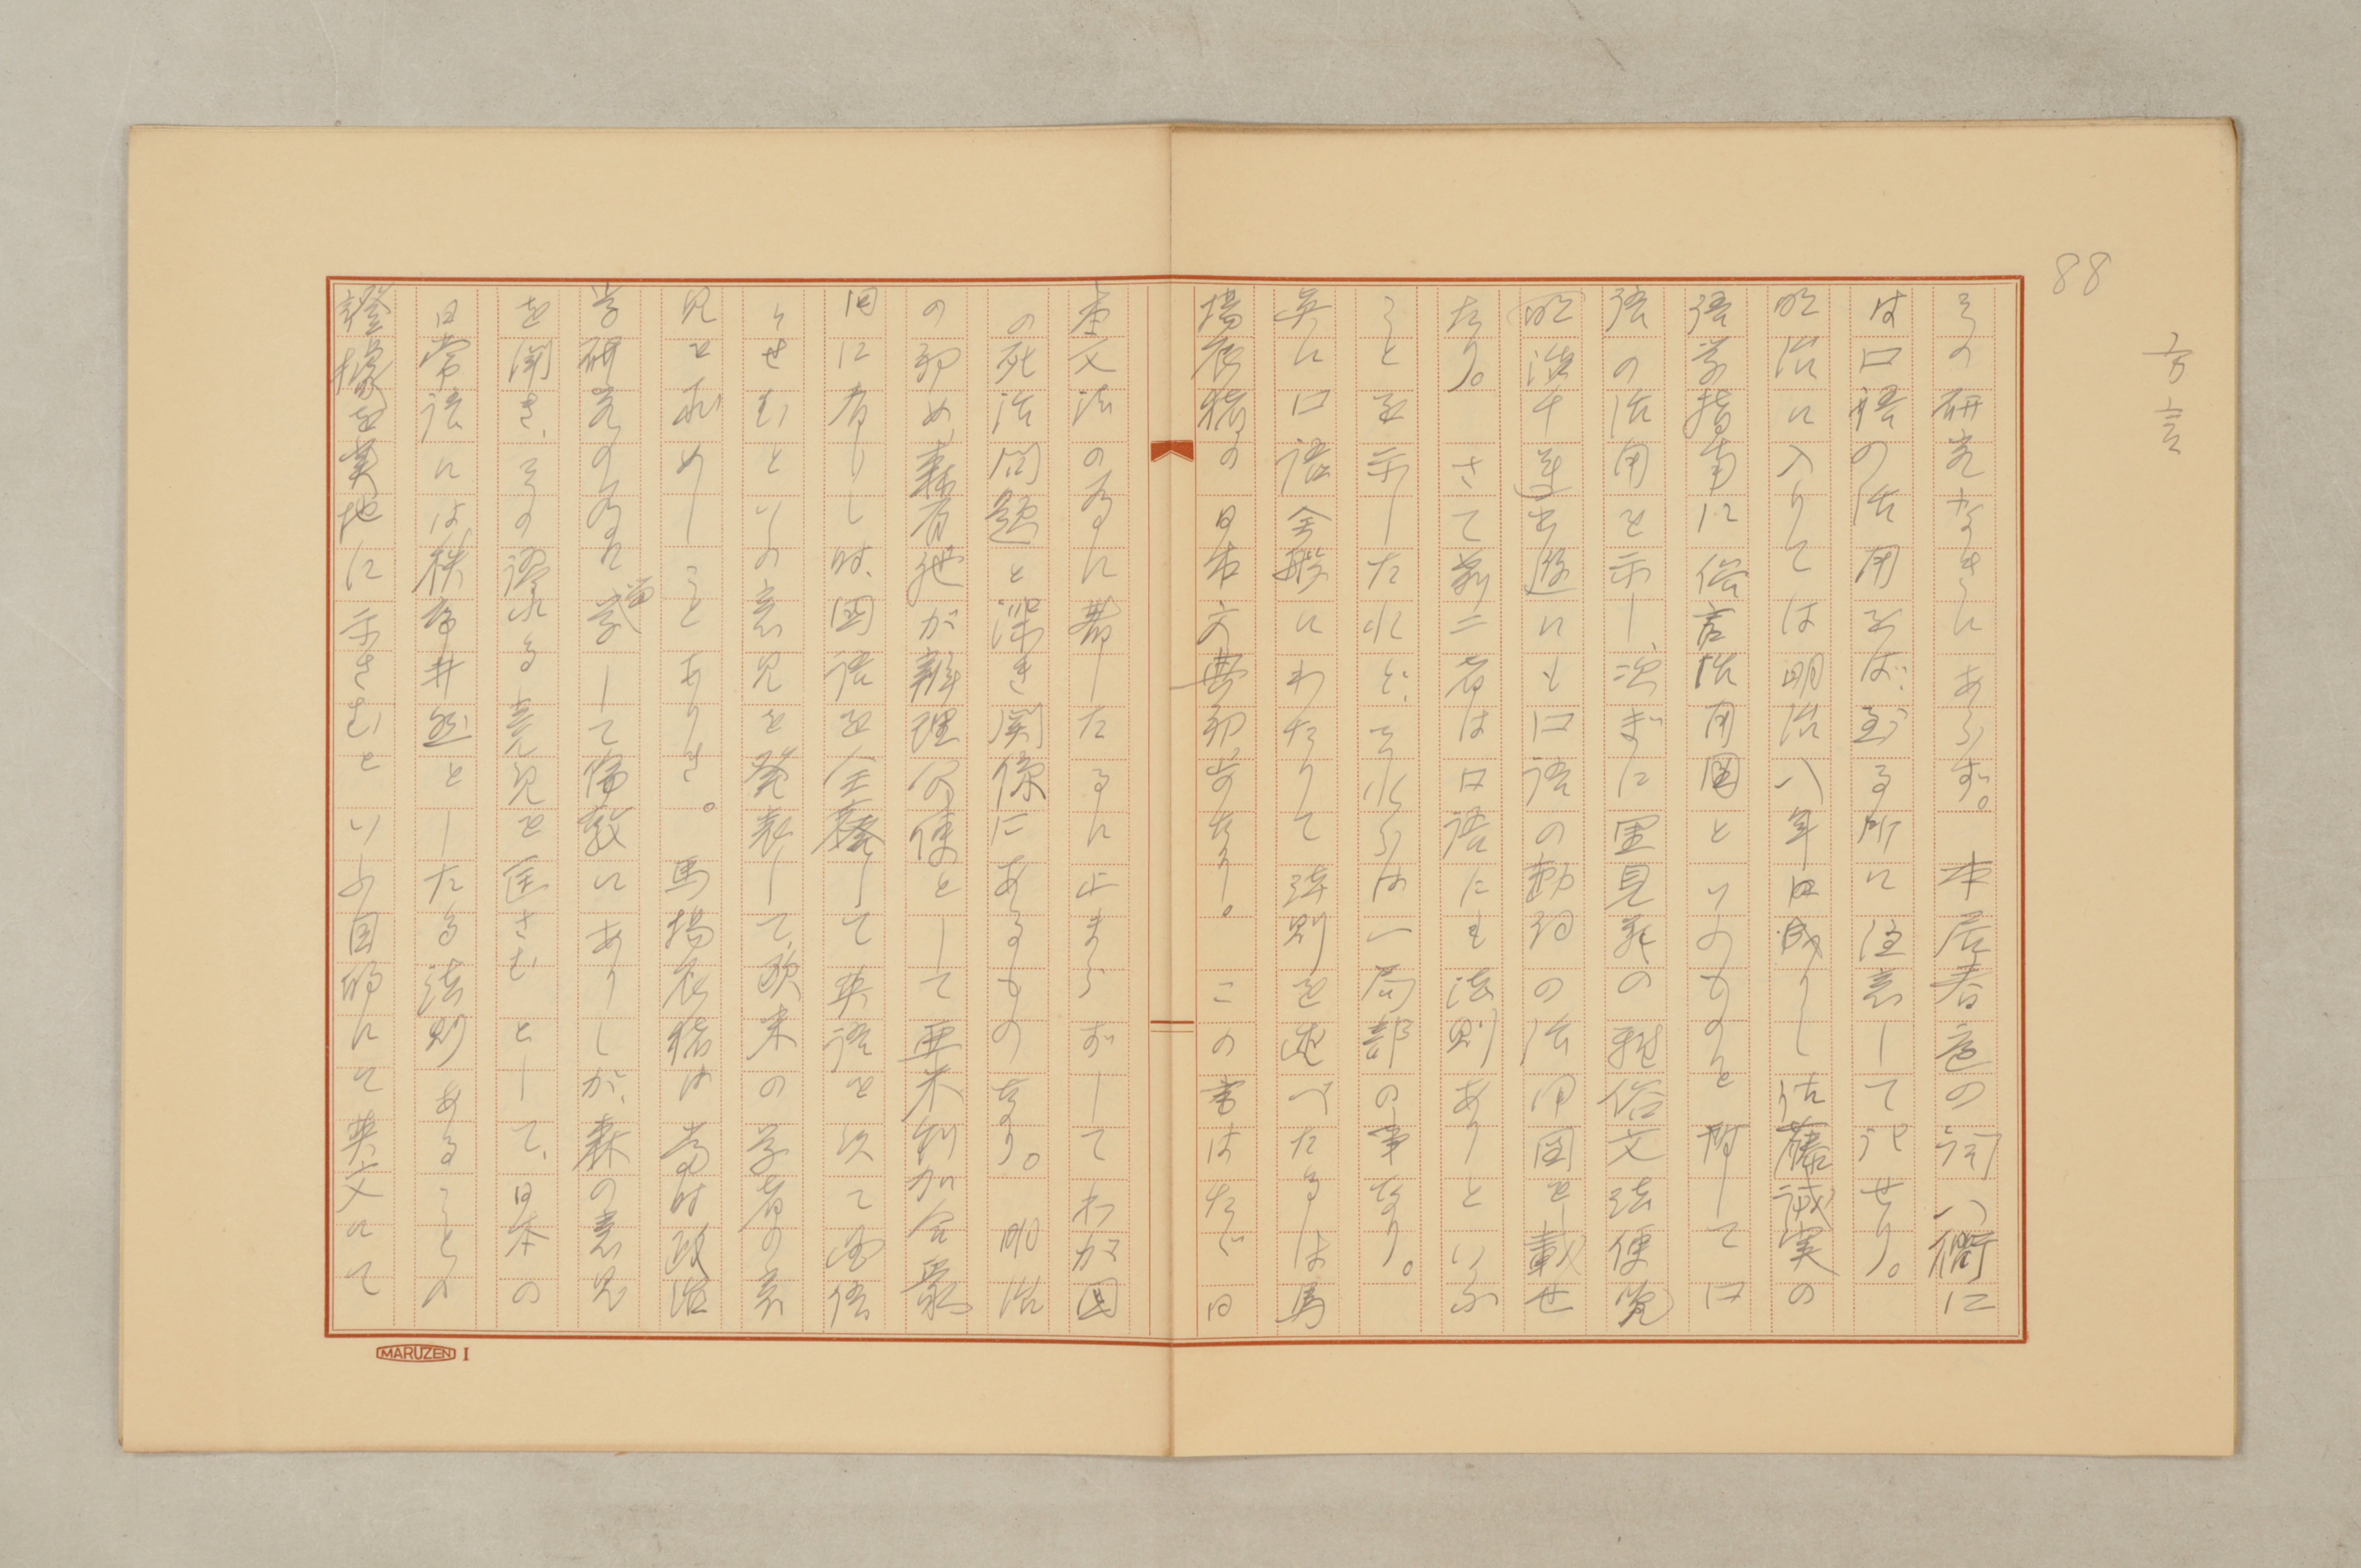 88
方言
その研究なきにあらず。本居春庭の詞八衢に
は口語の活用をば、到る所に注意して記せり。
明治に入りては明治八年に成りし佐藤誠実の
語学指南に俗言活用図といふものを附して口
語の活用を示し、次ぎに里見義の雅俗文法便覧
(明治十年出版)にも口語の動詞の活用図を載せ
たり。さて前二者は口語にも法則ありといふ
ことを示したれど、それらは一局部の事なり。
英に口語全般にわたりて法則を述べたるは馬
場辰猪の日本文典初歩なり。この書はただ日
本文法の為に著したるに止まらずしてわが国
の死活問題と深き関係にあるものなり。明治
の初め森有礼が辨理公使として亜米利加合衆
国に有りし時、国語を全廃して英語を以て国語
とせむといふ意見を発表して、欧米の学者の意
見を求めしことありき。馬場辰猪は当時政治
学研究の為に留学して倫敦にありしが、森の意見
を聞き、その謬れる意見を匡さむとして、日本の
日常語には、秩序井然としたる法則あることの
證據を実地に示さむといふ目的にて英文にて
MARUZEN I